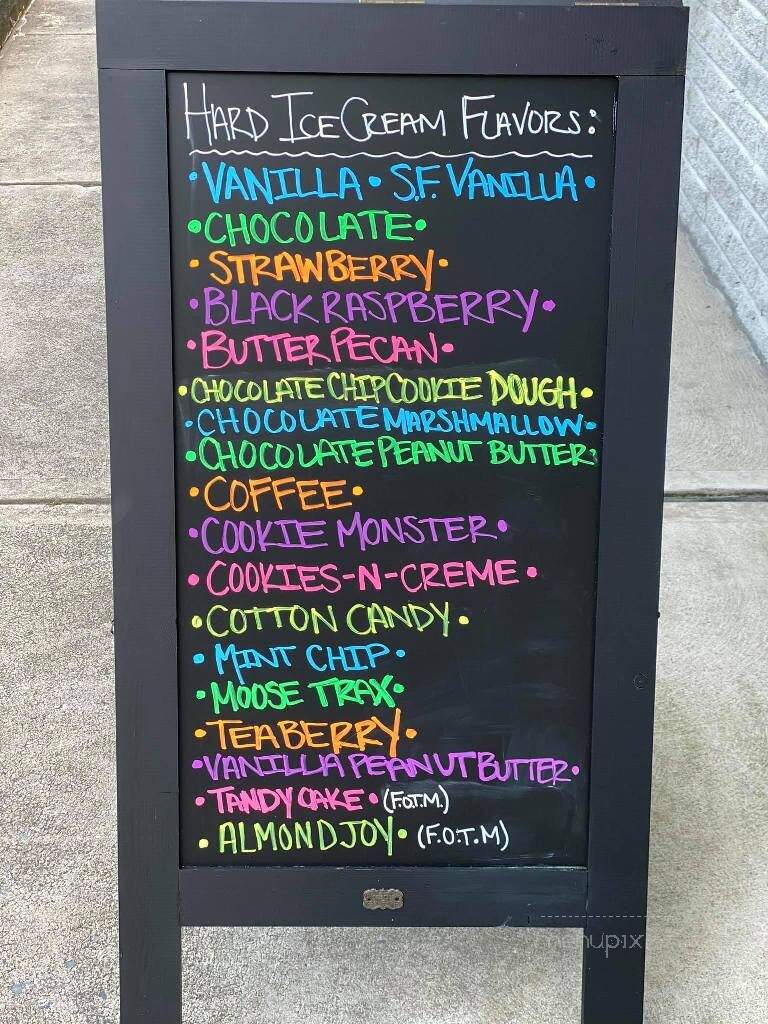 HARD ICE CREAM FLAVORS:
•VANILLA• S.F. VANILLA•
•CHOCOLATE•
•STRAWBERRY•
•BLACK RASPBERRY•
•BUTTER PECAN•
•CHOCOLATE CHIP COOKIE DOUGH•
•CHOCOLATE MARSHMALLOW•
•CHOCOLATE PEANUT BUTTER•
•COFFEE•
•COOKIE MONSTER•
•COOKIES-N-CREME•
•COTTON CANDY•
•MINT CHIP•
•MOOSE TRAX•
•TEABERRY•
•VANILLA PEANUT BUTTER•
•TANDY CAKE• (F.O.T.M.)
•ALMOND JOY• (F.O.T.M)
menupix